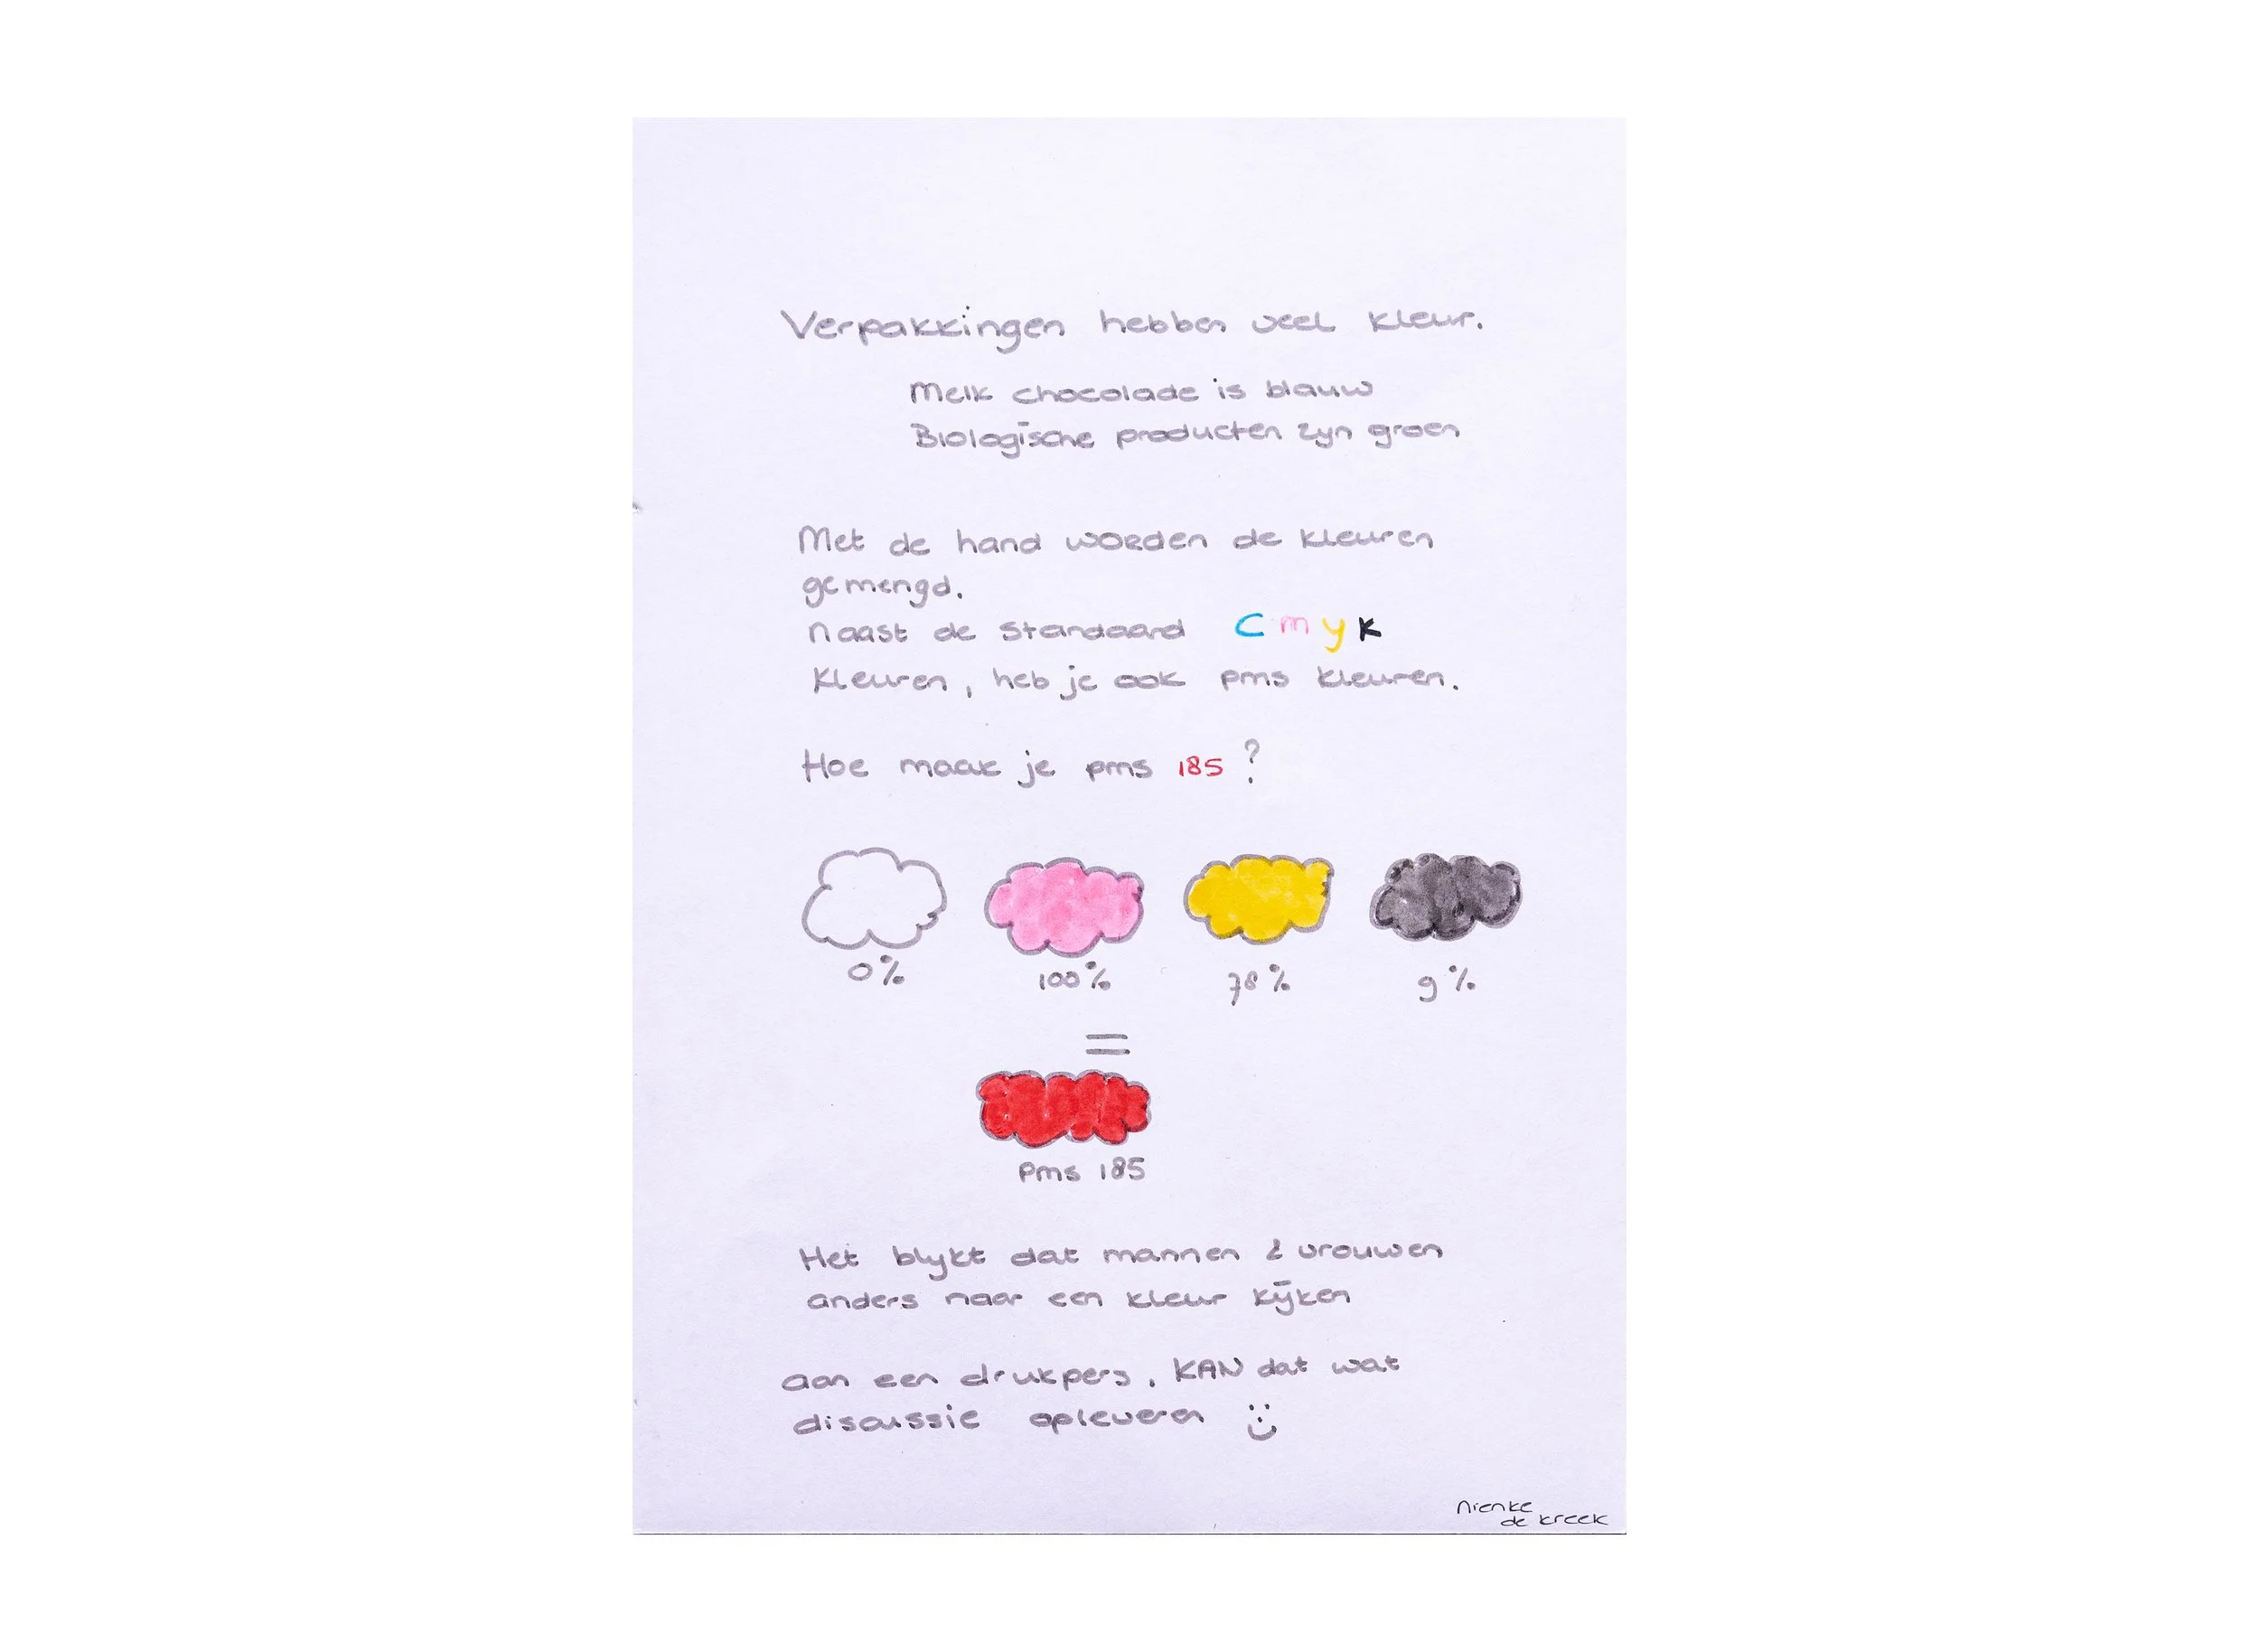 Verpakkingen hebben veel kleur.
Melk chocolade is blauw
Biologische producten zijn groen
Met de hand worden de kleuren
gemengd.
Naast de standaard cmyk
kleuren, heb je ook pms kleuren.
Hoe maak je pms 185 ?
0% 100% 78% 9%
=
pms 185
Het blijkt dat mannen & vrouwen
anders naar een kleur kijken
aan een drukpers, KAN dat wat
discussie opleveren
Nienke
de kreek